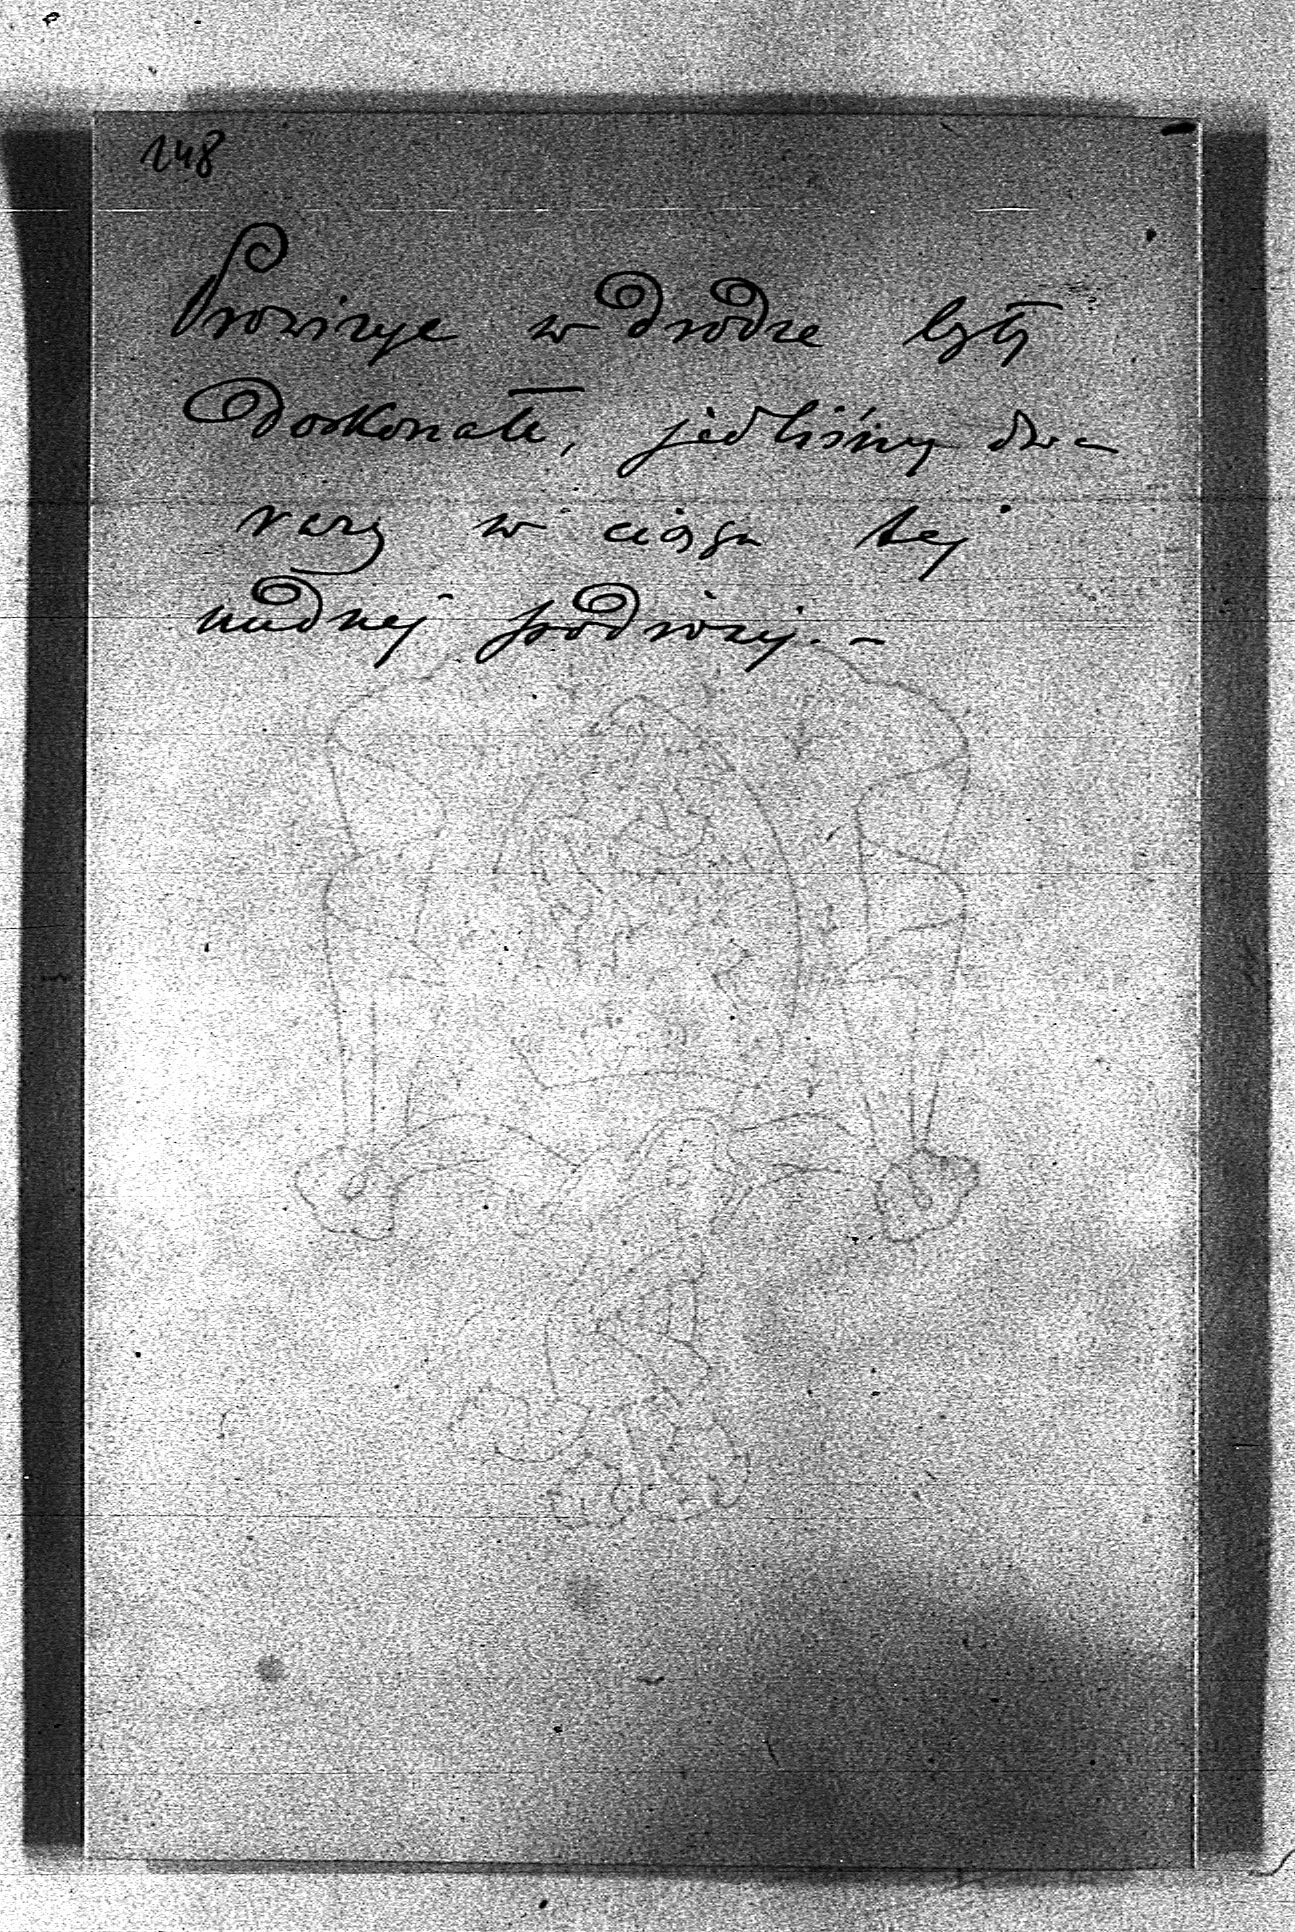 148
Prowizye w drodze były
doskonałe, jedliśmy dwa
razy w ciągu tej
nudnej podróży. –